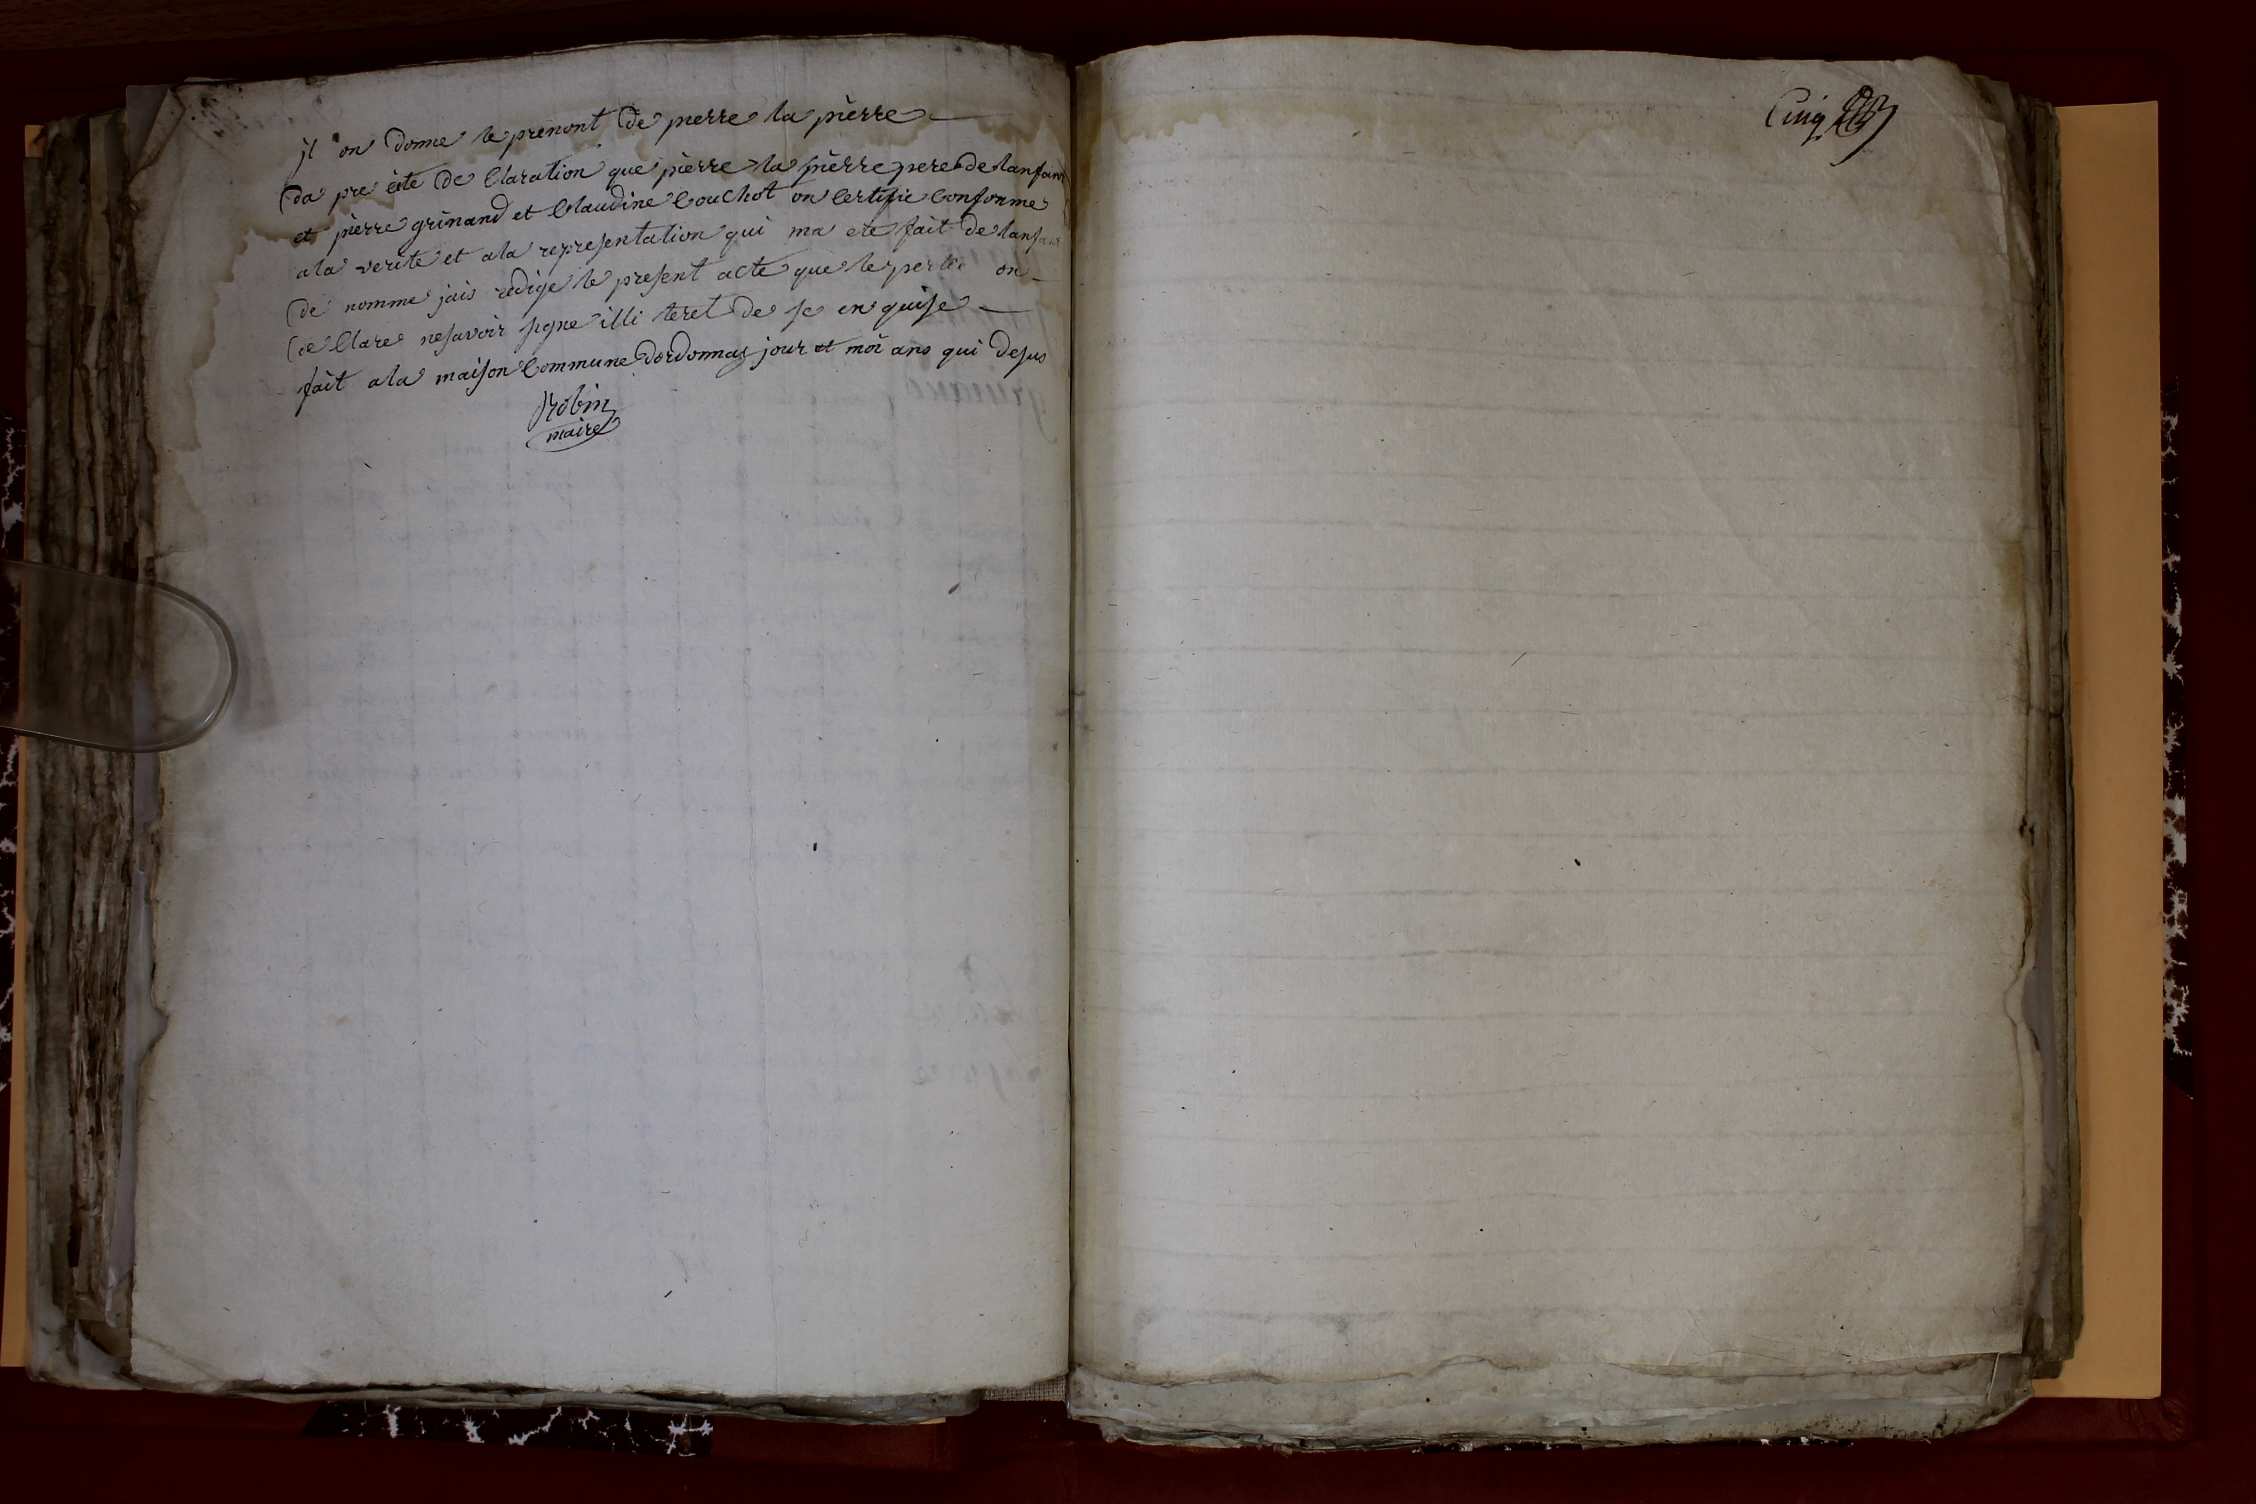 jl on donne le prenont de pierre la pierre
da pre cete de Claration que pierre la pierre pere de lanfant
et pierre grinand et Claudine Couchot on Certifie Conforme
a la verite et a la representation qui ma ete fait de lanfant
de nomme jais redige le present acte que le on
de Clare ne savoir signe illi teret de se en quise
fait a la maison Commune dordonnas jour et moi ans qui desus
Robin
maire
Cinq